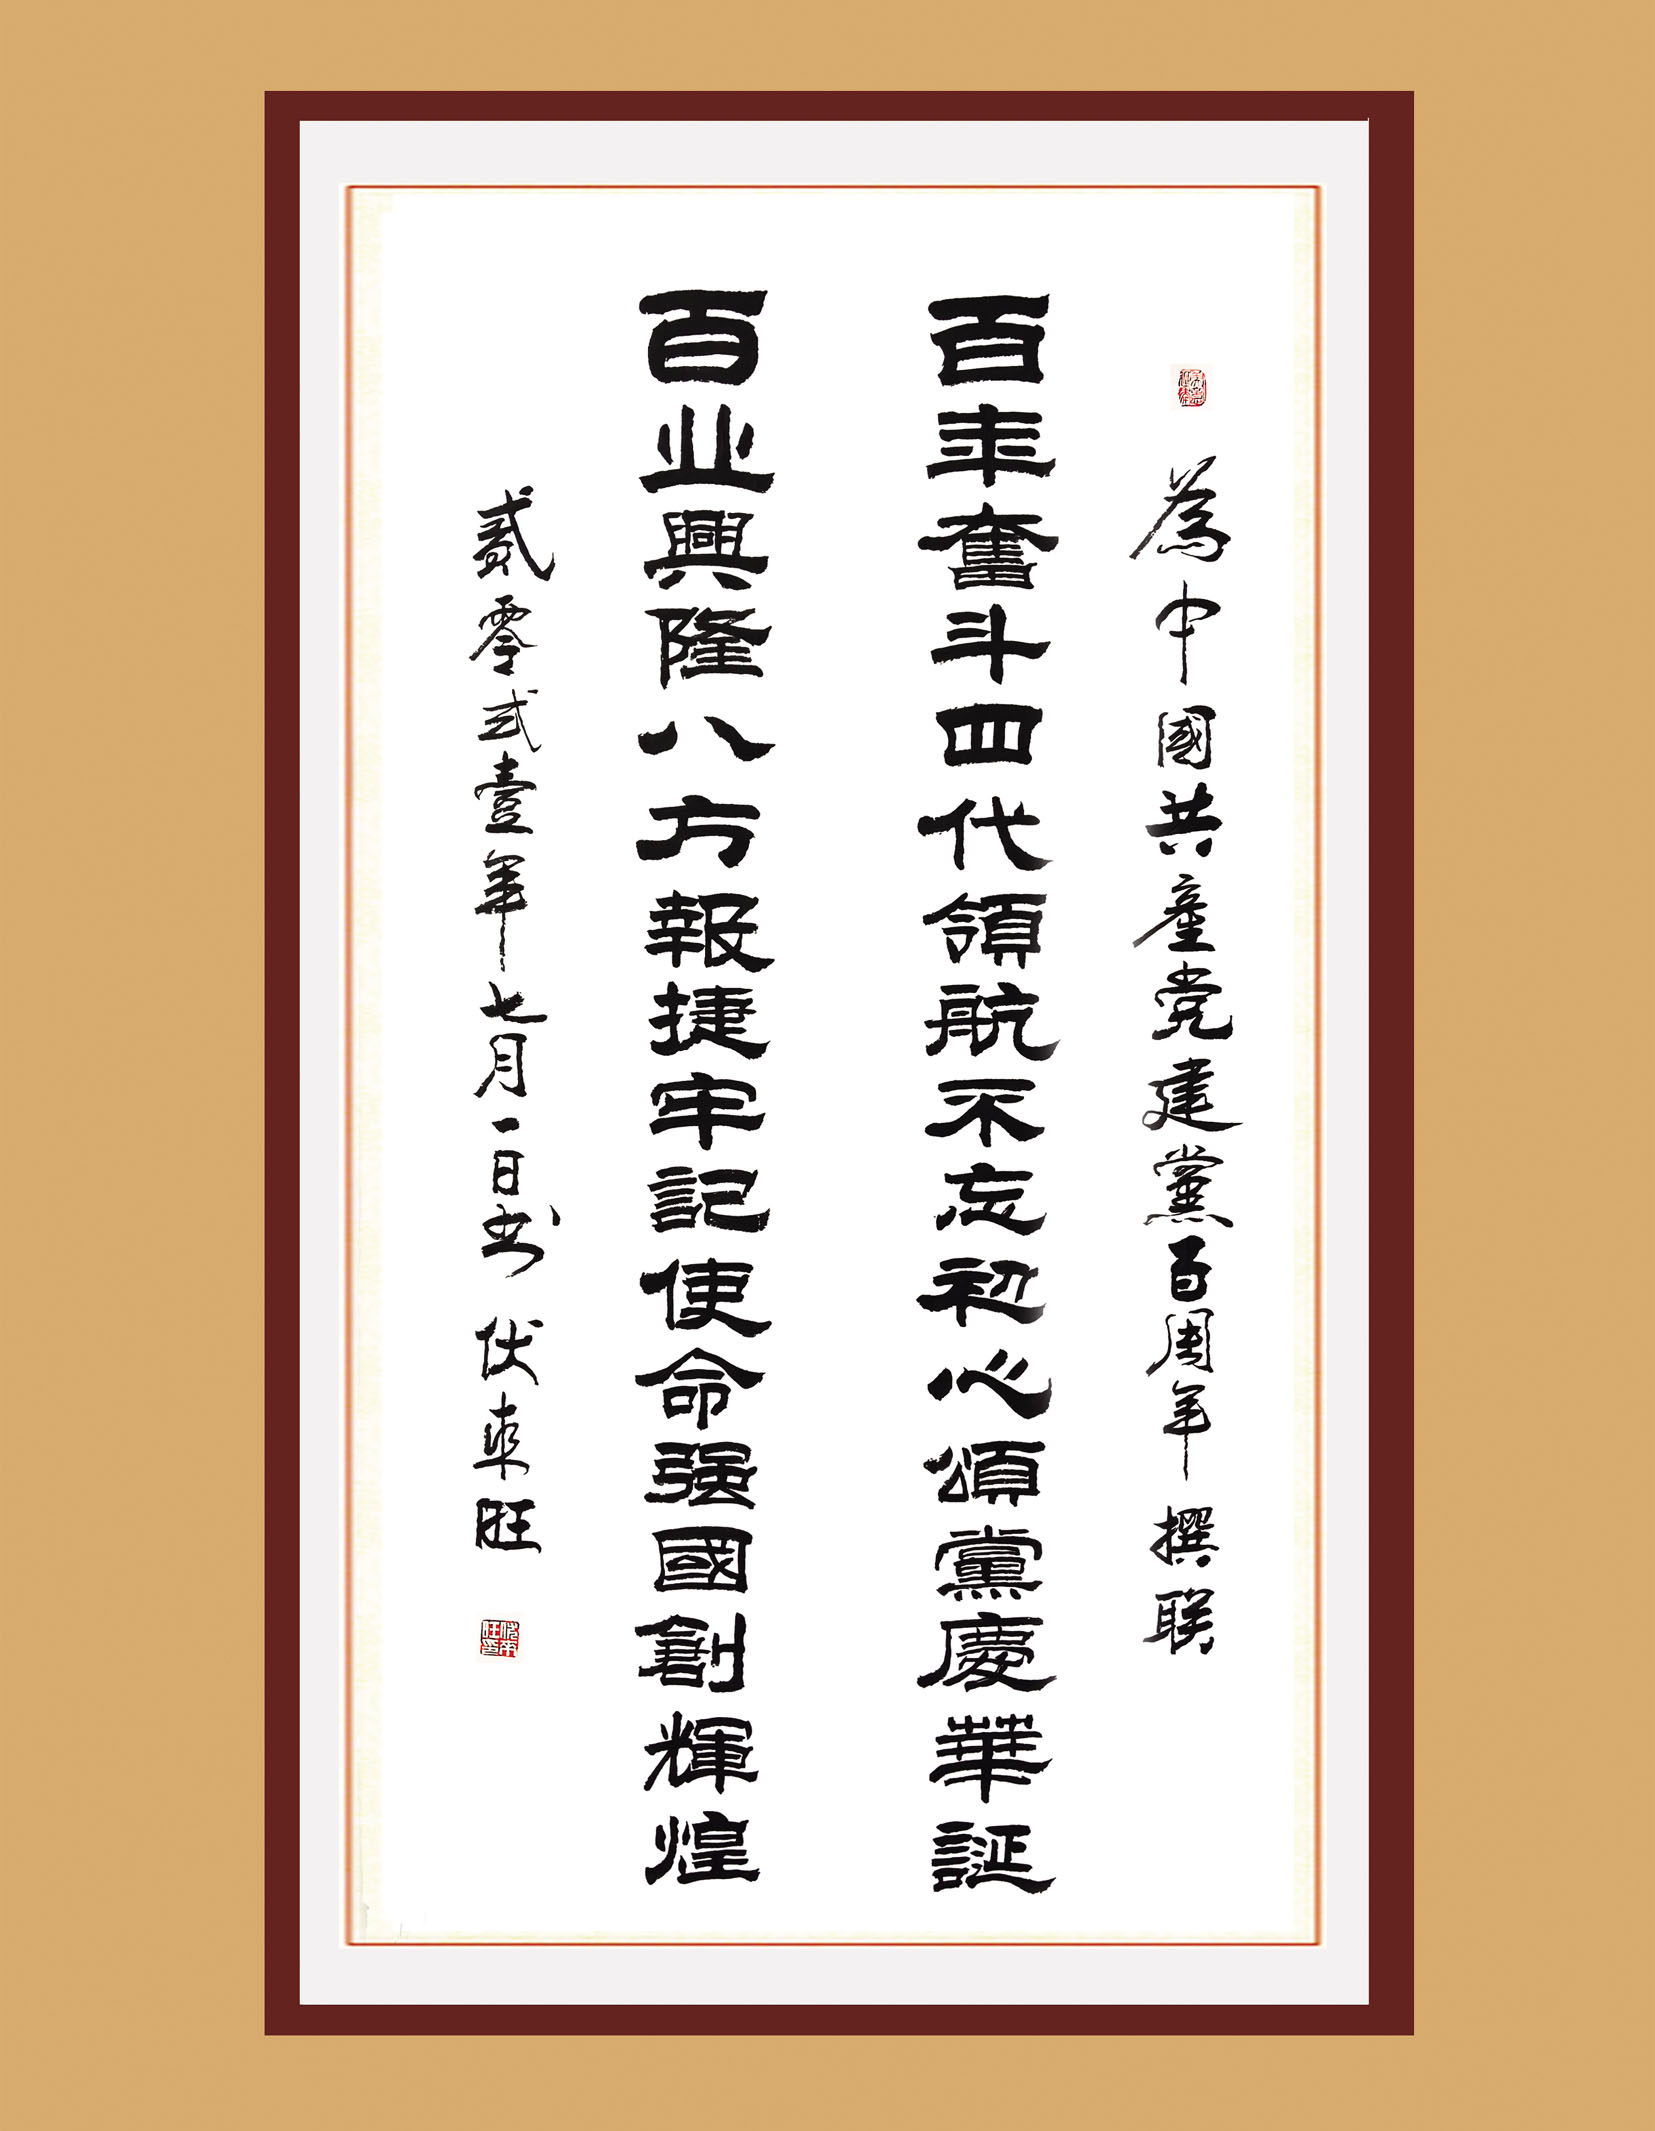 為中國共產党建黨百周年撰联
百年奮斗四代領航不忘初心頌黨慶華誕
百业興隆八方報捷牢記使命强國創輝煌
貳零弍壹年七月一日书 伏来旺